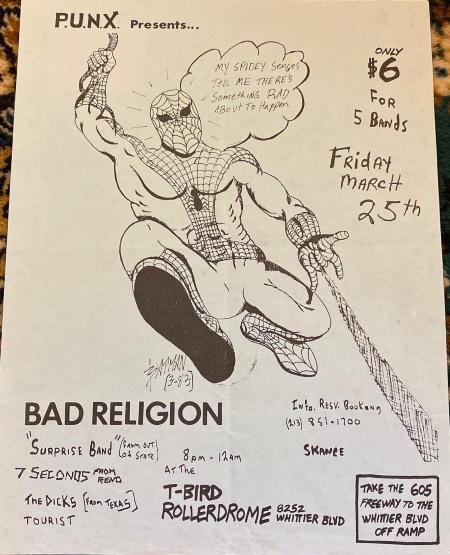 P.U.N.X. Presents...
MY SPIDEY Senses
TELL ME THERE'S
Something BAD
About To Happen
ONLY
$6
FOR
5 BANDS
FRIDAY
MARCH
25th
BATMAN
[3-83]
BAD RELIGION
"SURPRISE BAND" (FROM OUT
OF STATE)
7 SECONDS FROM
RENO
THE DICKS [FROM TEXAS]
TOURIST
8pm - 12am
AT THE
T-BIRD
ROLLERDROME 8252
WHITTIER BLVD
Info. RESV. Booking
(213) 851-1700
SKANCE
TAKE THE 605
FREEWAY TO THE
WHITTIER BLVD
OFF RAMP